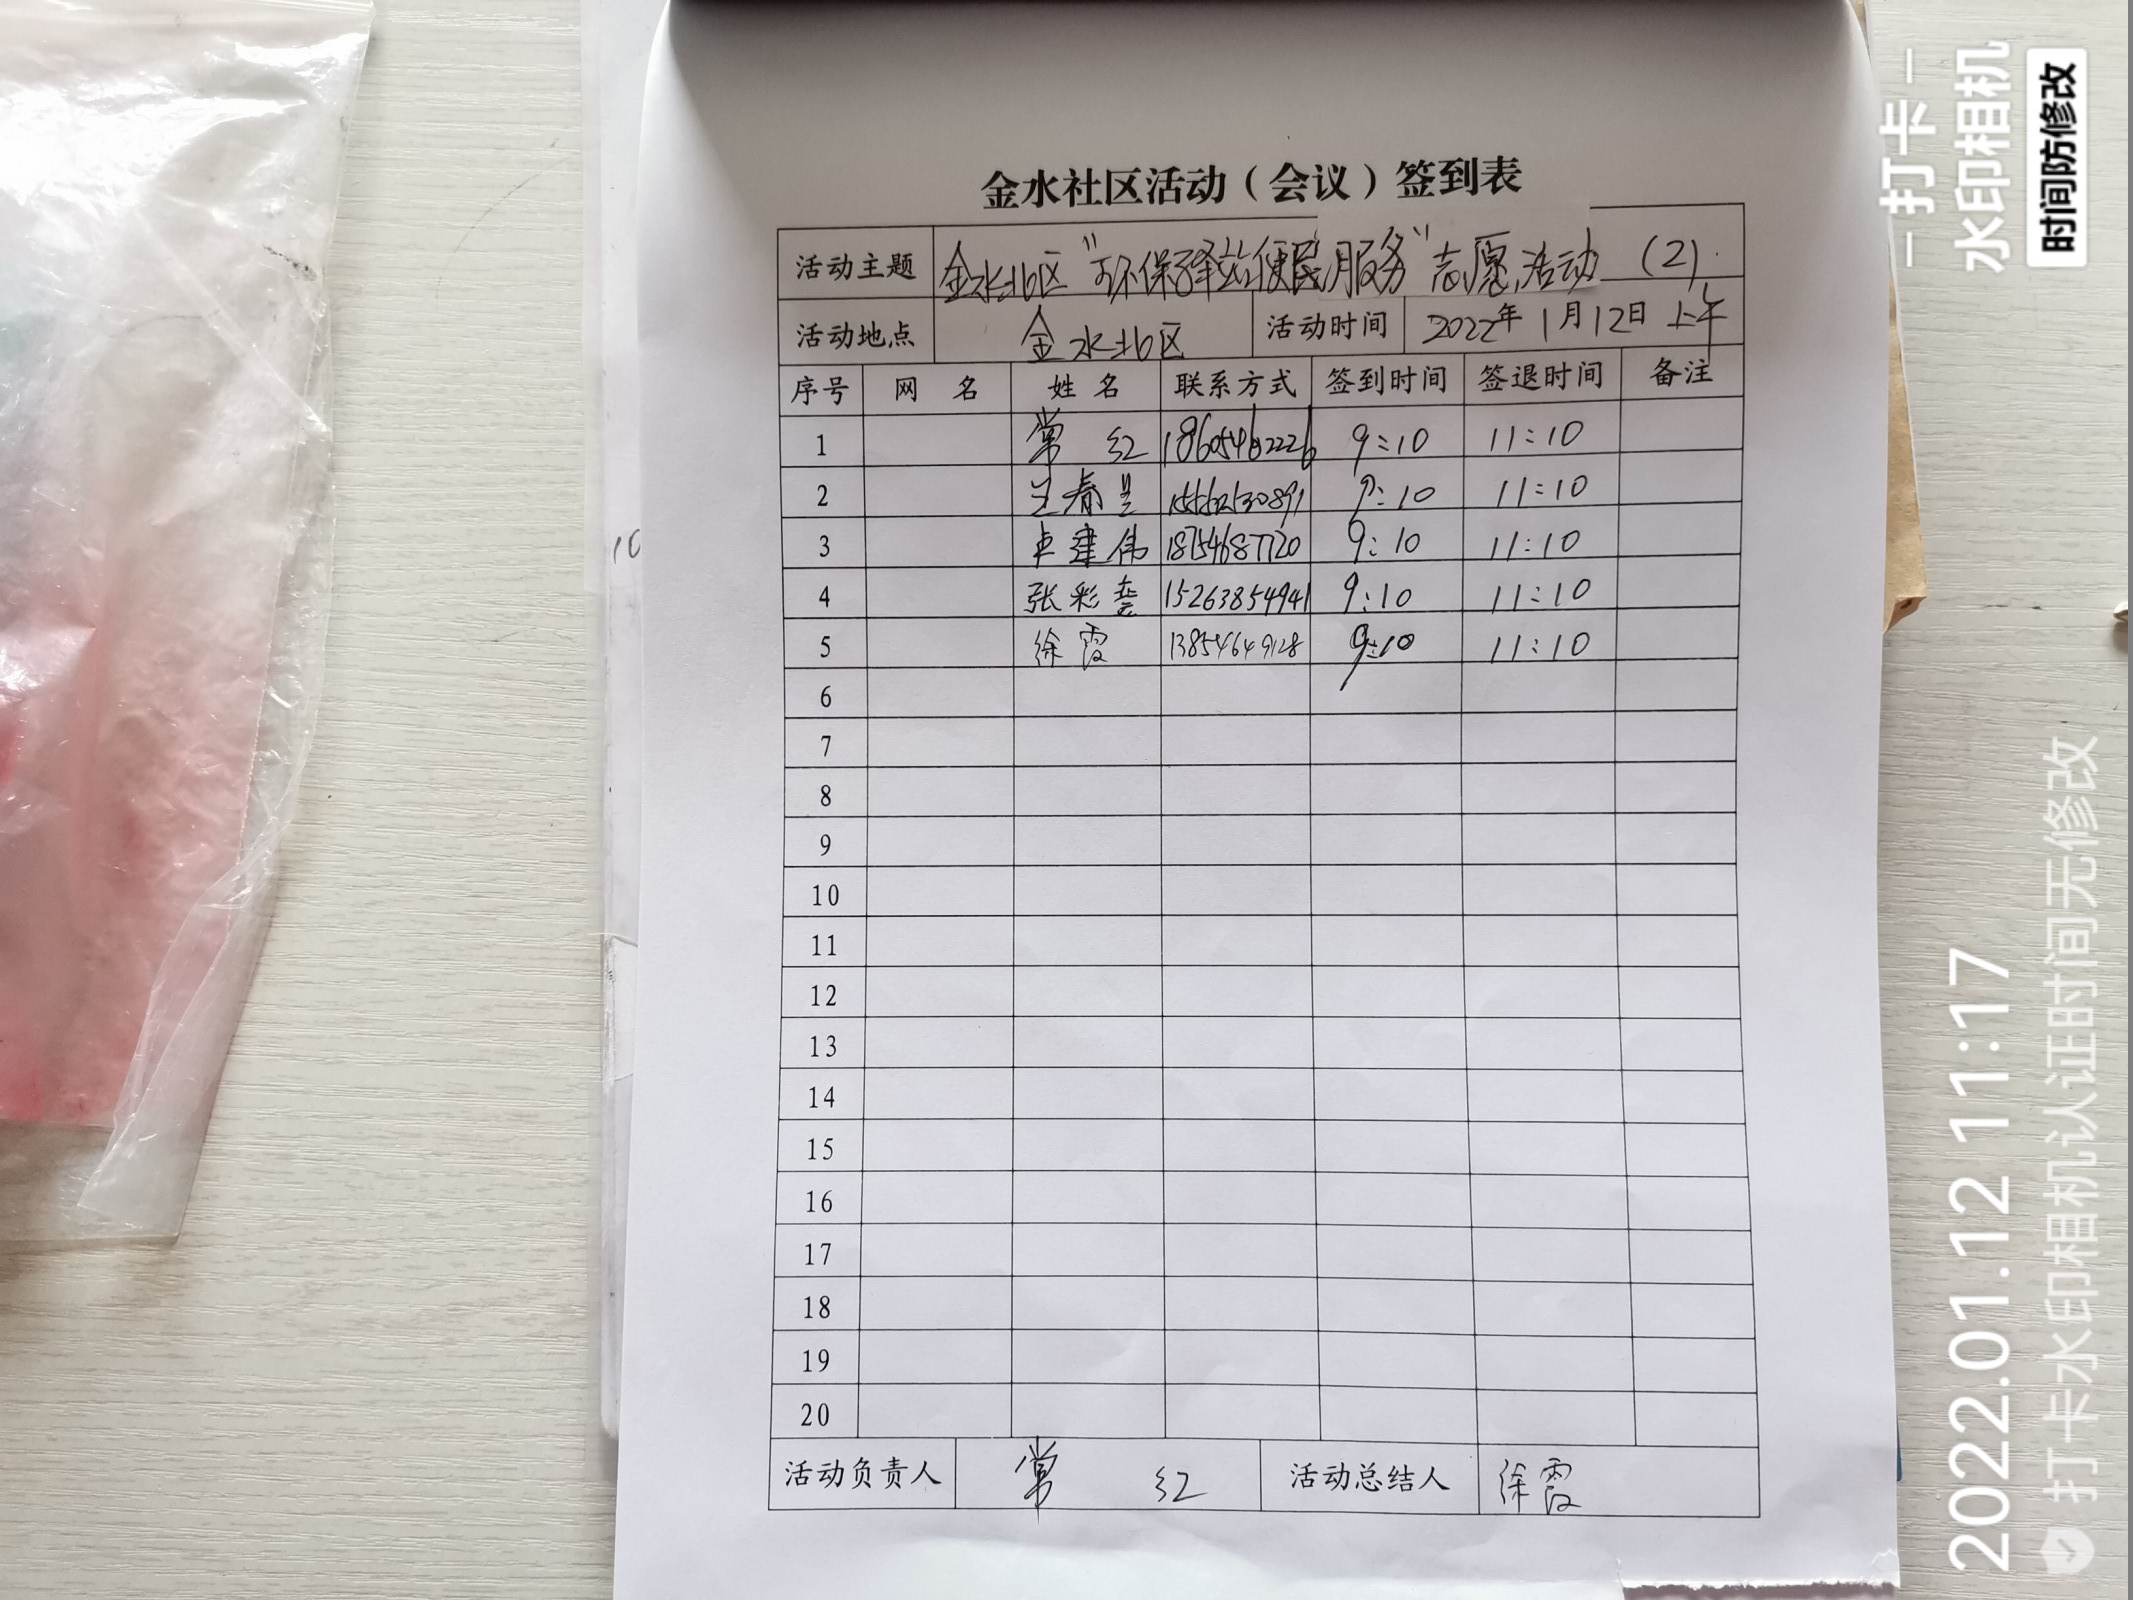 金水社区活动（会议）签到表
活动主题 金水北区“环保驿站便民服务”志愿活动（2）
活动地点 金水北区 活动时间 2022年1月12日上午
序号 网名 姓名 联系方式 签到时间 签退时间 备注
1 常红 18605462226 9:10 11:10
2 9:10 11:10
3 卓建伟 18754687120 9:10 11:10
4 张彩 15263854941 9:10 11:10
5 徐霞 13854649128 9:10 11:10
6
7
8
9
10
11
12
13
14
15
16
17
18
19
20
活动负责人 常红 活动总结人 徐霞
10
打卡
水印相机
时间防修改
2022.01.12 11:17
打卡水印相机认证时间无修改